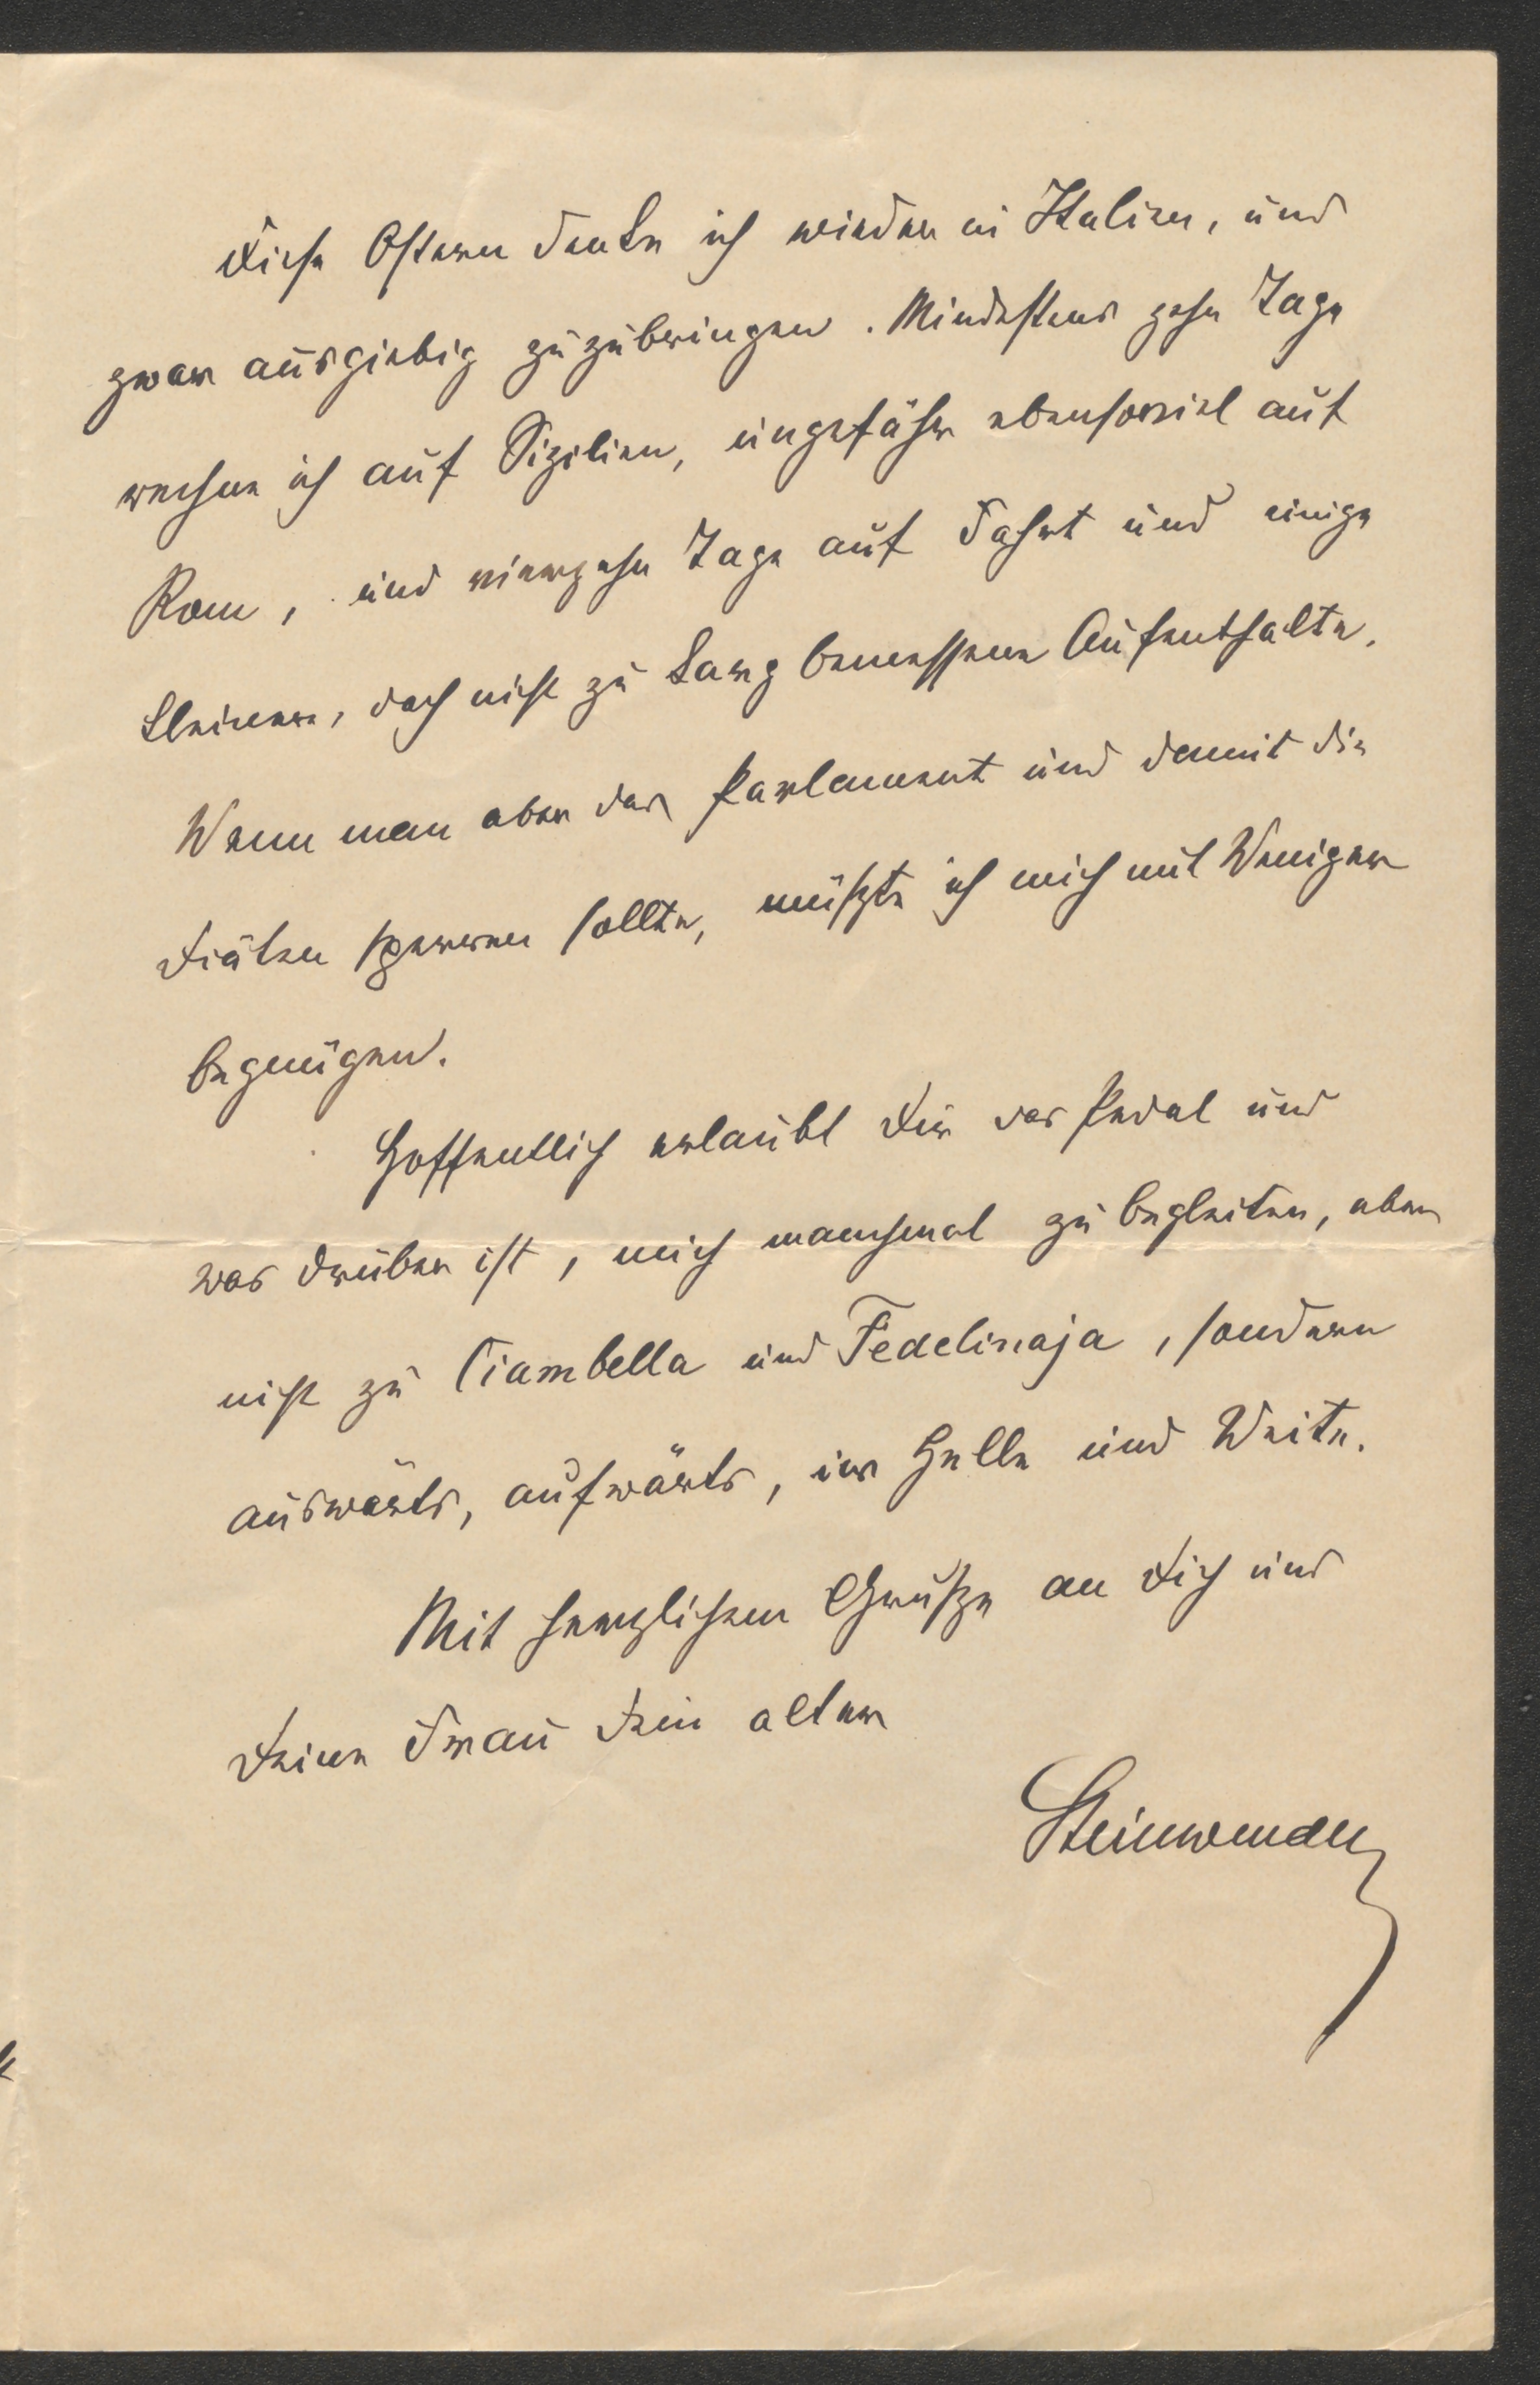 Diese Ostern denke ich wieder in Italien, und
zwar ausgiebig zuzubringen. Mindestens zehn Tage
rechne ich auf Sizilien, ungefähr ebensoviel auf
Rom, und vierzehn Tage auf Fahrt und einige
kleinere, doch nicht zu karg bemessene Aufenthalte.
Wenn man aber das Parlament und damit die
Diäten sperren sollte, müßte ich mich mit Weniger
begnügen.
Hoffentlich erlaubt Dir das Pedal und
was drüber ist, mich manchmal zu begleiten, aber
nicht zu Ciambella und Fedelinaja, sondern
auswärts, aufwärts, ins Helle und Weite.
Mit herzlichem Gruße an Dich und
Deine Frau Dein alter
Steinwender